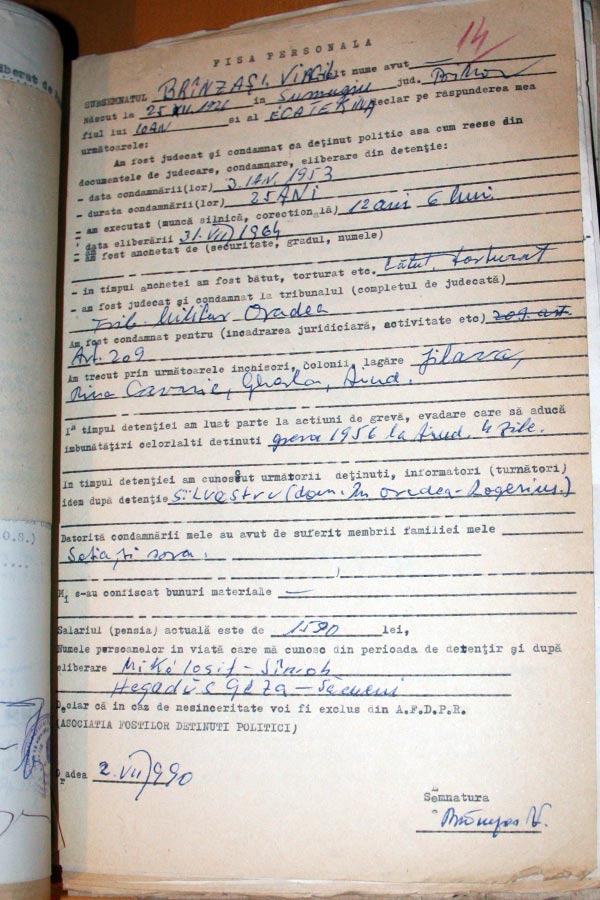 14
FISA PERSONALA
SUBSEMNATUL BRÎNZAȘ VIRGIL alt nume avut —
Născut la 25 XII. 1926 în Sumugiu jud. Bihor
fiul lui IOAN si al ECATERINA declar pe răspunderea mea
următoarele:
Am fost judecat și condamnat ca deținut politic asa cum reese din
documentele de judecare, condamnare, eliberare din detenție:
- data condamnării(lor) 3 IAN. 1953
- durata condamnării(lor) 25 ANI
- am executat (muncă silnică, corecțională) 12 ani 6 luni
- data eliberării 31.VII 1964
- am fost anchetat de (securitate, gradul, numele)
- in timpul anchetei am fost bătut, torturat etc. bătut, torturat
- am fost judecat și condamnat la tribunalul (completul de judecată)
Trib. Militar Oradea
Am fost condamnat pentru (incadrarea juridiciară, activitate etc) 209 art
Art. 209
Am trecut prin următoarele inchisori, colonii, lagăre Jilava,
Mina Cavnic, Gherla, Aiud.
In timpul detenției am luat parte la actiuni de grevă, evadare care să aducă
imbunătățiri celorlalti detinuti greva 1956 la Aiud. 4 zile.
In timpul detenției am cunoscut următorii deținuti, informatori (turnători)
idem după detenție Silvastru (dom. în Oradea-Rogerius.)
Datorită condamnării mele au avut de suferit membrii familiei mele
Soția și sora.
Mi s-au confiscat bunuri materiale —
Salariul (pensia) actuală este de 1590 lei,
Numele persoanelor in viată care mă cunosc din perioada de detențir și după
eliberare Mikó Iosif - Sîniob
Hegadüs Géza - Săcueni
Declar că in căz de nesinceritate voi fi exclus din A.F.D.P.R.
(ASOCIATIA FOSTILOR DETINUTI POLITICI)
Oradea 2.VII 1990
Semnatura
Brînzaș V.
iberat de
O.S.)